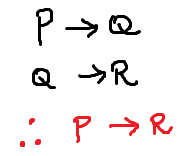 P → Q
Q → R
∴ P → R